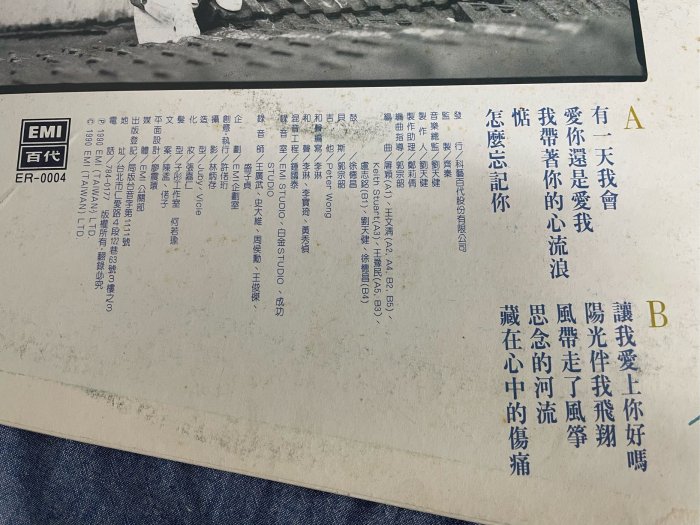 A
有一天我會
愛你還是愛我
我帶著你的心流浪
惦
怎麼忘記你
B
讓我愛上你好嗎
陽光伴我飛翔
風帶走了風箏
思念的河流
藏在心中的傷痛
發 行／科藝百代股份有限公司
監 製／齊樂
音樂總監／劉天健
製 作 人／劉天健
製作助理／鄭莉倩
編曲指導／郭宗韶
編 曲／屠穎(A1)、王文清(A2, A4, B2, B5)、
Keith Stuart(A3)、王豫民(A5, B3)、
盧志銘(B1)、劉天健、徐德昌(B4)
鼓／徐德昌
貝 斯／郭宗韶
吉 他／Peter Wong
和聲編寫／李琳
和 聲／李琳、李寶琦、黃秀禎
混音工程／孫國泰
錄 音 室／EMI STUDIO、白金STUDIO、成功
STUDIO
錄 音 師／王廣武、史大維、周侯勳、王俊傑、
企 劃／EMI企劃室
創意・執行／許佰珩
攝 影／林炳存
造 型／Judy・Vinie
化 妝／張嘉仁
髮 型／子彤工作室 何若瑜
文 案／陳孟、孩子
平面設計／廖震
媒 體／EMI公關部
出版登記／局版台音字第1111號
地 址／台北市仁愛路4段122巷63號9樓之9
電 話／784-0177 版權所有・翻錄必究
Ⓟ 1990 EMI (TAIWAN) LTD
© 1990 EMI (TAIWAN) LTD
EMI
百代
ER-0004